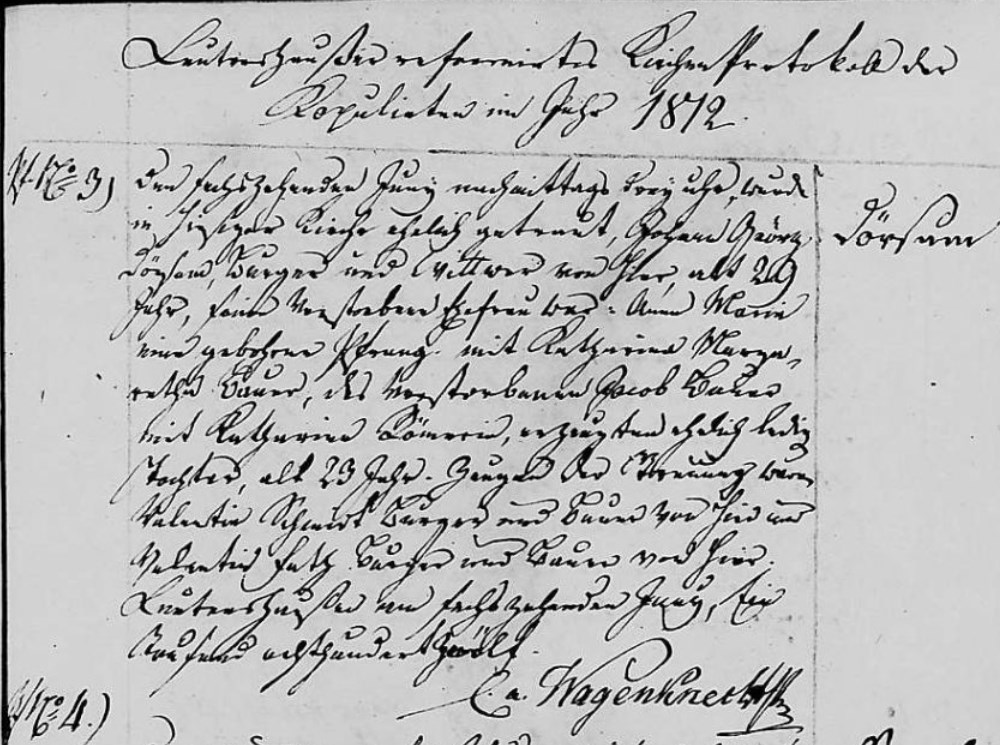 Leutershaußer reformirtes Kirchen Protokoll der
Kopulirten im Jahr 1812.
No 3)
Den sechszehenden Juny nachmittags drey uhr, wurde
in hiesiger Kirche ehelich getraut, Johann Georg
Dörsam, Burger und Wittwer von hier, alt 29
Jahr, seine verstorbene Ehefrau war: Anna Maria
eine gebohrne Pfrang. mit Katharina Marga,
retha Bauer, des verstorbenen Jacob Bauer
mit Katharina Römerin, erzeugten ehelich ledig
Tochter, alt 23 Jahr. Zeugen der Trauung waren
Valentin Schmidt Burger und Bauer von hier und
Valentin Fath Burger und Bauer von hier.
Leutershaußen am sechszehenden Juny, Ein
Tausend achthundert zwölf.
C. a. Wagenknecht
Dörsam
No 4.)